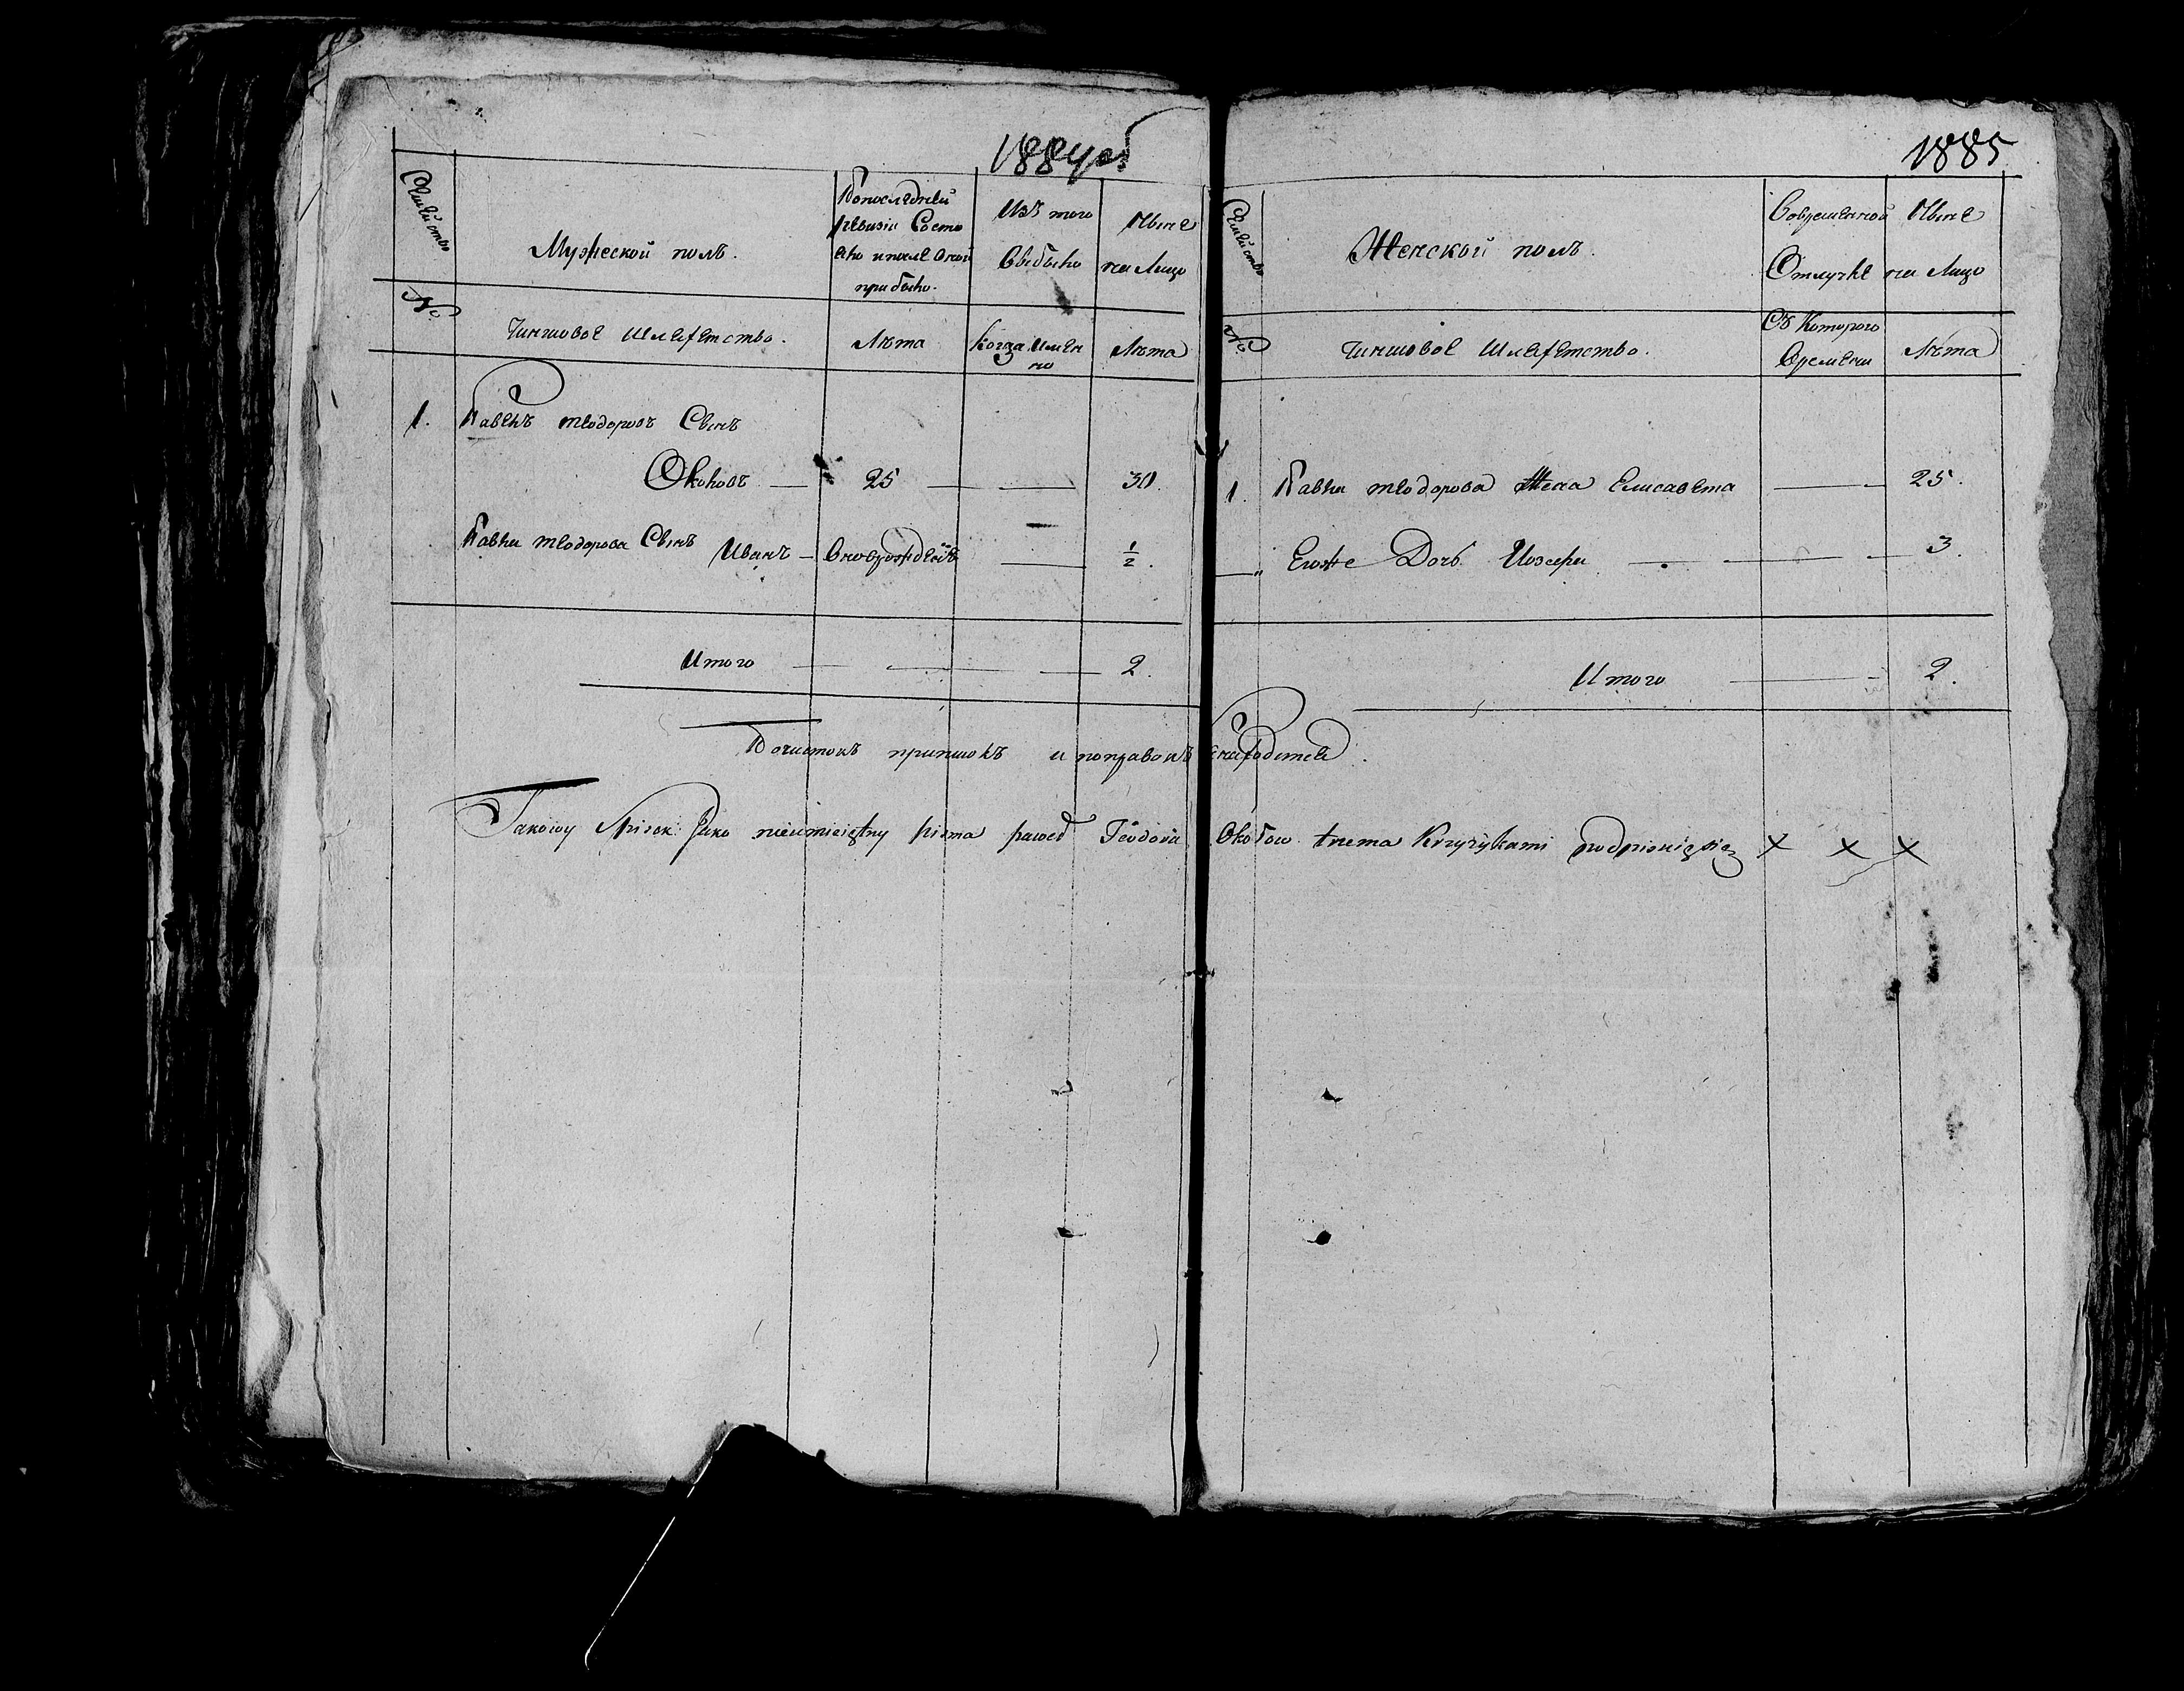 1884 об
Семейство
Мужеской полъ.
Попослѣдней
ревизіи Состо
яло ипосле оной
прибыло.
Изъ того
Выбыло
Ныне
на Лицо
№
Чиншовое Шляхетство.
Лѣта
Когда имен
но
Лѣта
1. Павелъ теодоровъ Сынъ
Околовъ — 25 — — 30.
Павла теодорова Сынъ Иванъ — Новорожденъ — 1/2.
Итого — — — 2.
1885
Семейство
Женской полъ.
Вовременной
Отлучке
Ныне
на Лицо
№
Чиншовое Шляхетство.
Съ Которого
Времени
Лѣта
1. Павла теодорова Жена Елисавета — — 25.
„ Егоже Дочь Иозефа — — — 3.
Итого — — 2.
Почистокъ приписокъ и поправокъ ненаходится.
Takowy Spisok Jako nieumieiętny pisma paweł Teodora Okołow trzema Krzyżykami podpisuię się X X X